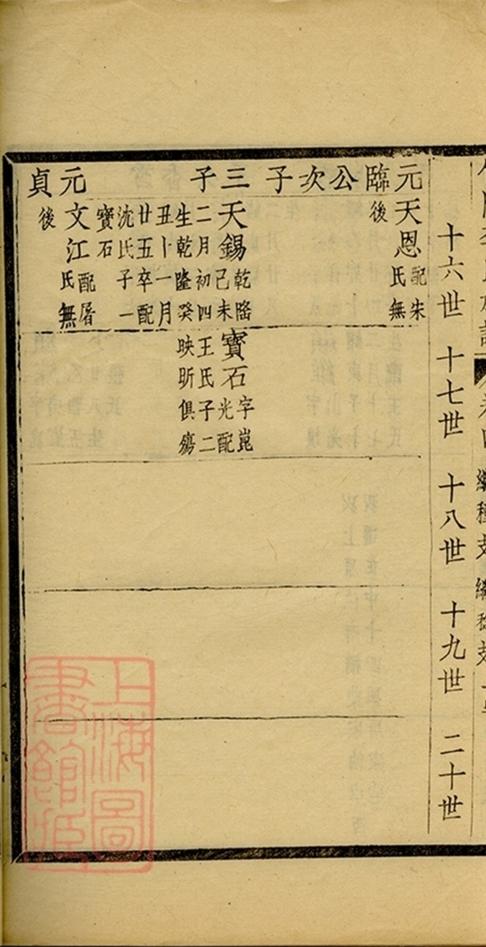 十六世 十七世 十八世 十九世 二十世
元臨公次子 三子 元貞
天恩 配朱
氏無
後
天錫 乾隆
己未
二月初四
生乾隆癸
丑十一月
廿五卒配
沈氏子一
寶石
文江 配屠
氏無
後
寶石 字崑
光配
王氏子二
映昕俱殤
上海圖
書館藏